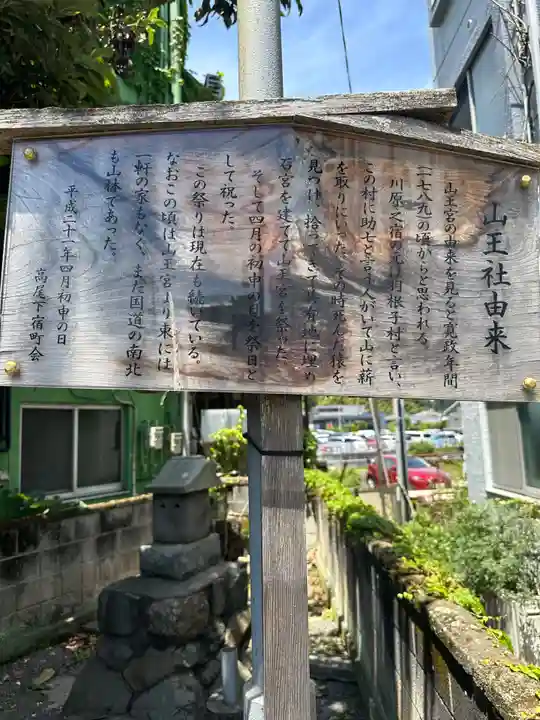 山王社由来
山王宮の由来を見ると寛政年間
(一七八九)の頃からと思われる。
川原之宿の元は羽根子村と言い、
この村に助七と言う人がいて山に薪
を取りにいった。その時死んだ猿を
見つけ、拾ってきて共有地に埋り
石宮を建てて山王宮を祭った。
そして四月の初申の日を祭日と
して祝った。
この祭りは現在も続いている。
なおこの頃は山王宮より東には
一軒の家もなく、また国道の南北
も山林であった。
平成二十一年四月初申の日
高尾下宿町会